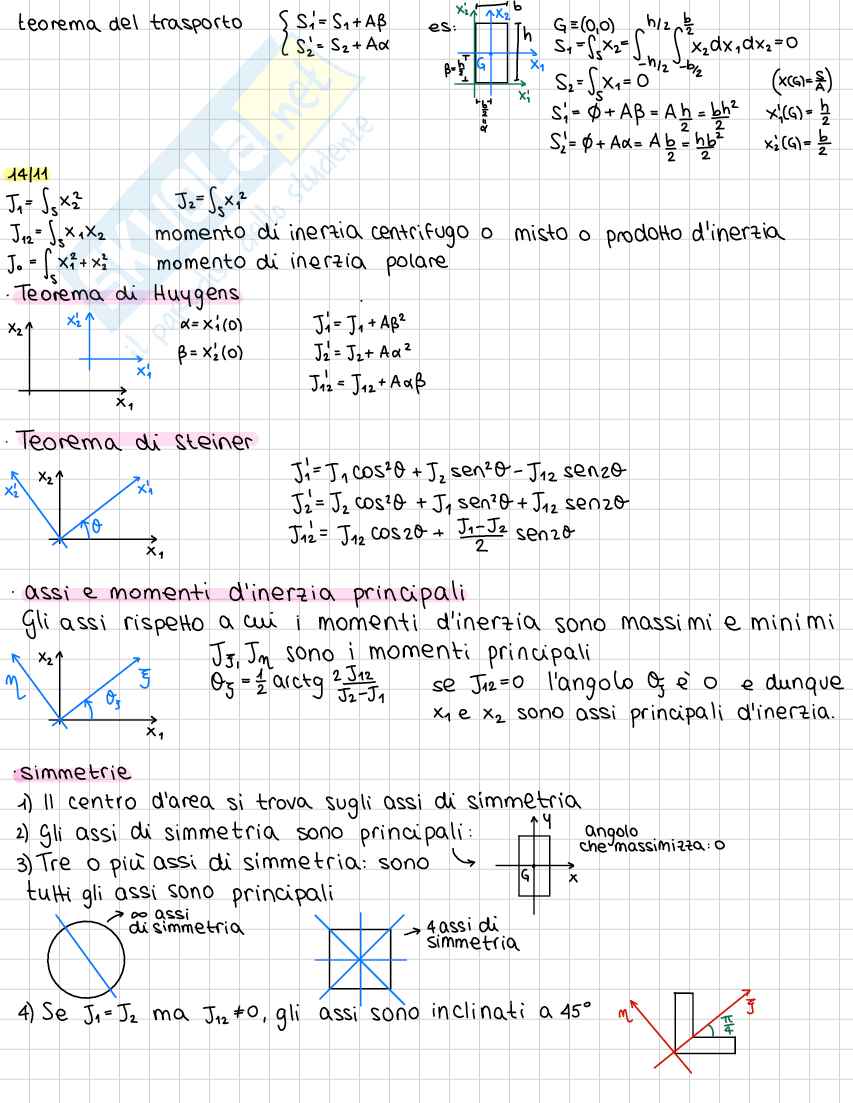 teorema del trasporto { S₁' = S₁ + Aβ
S₂' = S₂ + Aα
es:
x₂' x₂ b
h
β = h/2
G x₁
x₁'
α = b/2
G ≡ (0,0)
S₁ = ∫ₛ x₂ = ∫₋ₕ/₂^h/2 ∫₋b/₂^b/2 x₂ dx₁ dx₂ = 0
S₂ = ∫ₛ x₁ = 0 (x(G) = S/A)
S₁' = ∅ + Aβ = A h/2 = bh²/2 x₁'(G) = h/2
S₂' = ∅ + Aα = A b/2 = hb²/2 x₂'(G) = b/2
SKUOLA.net
il paradiso dello studente
14/11
J₁ = ∫ₛ x₂² J₂ = ∫ₛ x₁²
J₁₂ = ∫ₛ x₁ x₂ momento di inerzia centrifugo o misto o prodotto d'inerzia
J₀ = ∫ₛ x₁² + x₂² momento di inerzia polare
· Teorema di Huygens
x₂ x₂' α = x₁'(0) J₁' = J₁ + Aβ²
β = x₂'(0) J₂' = J₂ + Aα²
x₁' J₁₂' = J₁₂ + Aαβ
x₁
· Teorema di Steiner
x₂ x₂' x₁' J₁' = J₁ cos²θ + J₂ sen²θ - J₁₂ sen2θ
J₂' = J₂ cos²θ + J₁ sen²θ + J₁₂ sen2θ
θ x₁ J₁₂' = J₁₂ cos2θ + (J₁ - J₂)/2 sen2θ
· assi e momenti d'inerzia principali
Gli assi rispetto a cui i momenti d'inerzia sono massimi e minimi
x₂ η ξ Jξ, Jη sono i momenti principali
θξ = 1/2 arctg 2J₁₂/(J₂ - J₁) se J₁₂ = 0 l'angolo θξ è 0 e dunque
θξ x₁ x₁ e x₂ sono assi principali d'inerzia.
· simmetrie
1) Il centro d'area si trova sugli assi di simmetria
2) Gli assi di simmetria sono principali:
y G x
angolo
che massimizza: 0
3) Tre o più assi di simmetria: sono
tutti gli assi sono principali
∞ assi
di simmetria
4 assi di
simmetria
4) Se J₁ = J₂ ma J₁₂ ≠ 0, gli assi sono inclinati a 45°
η ξ π/4